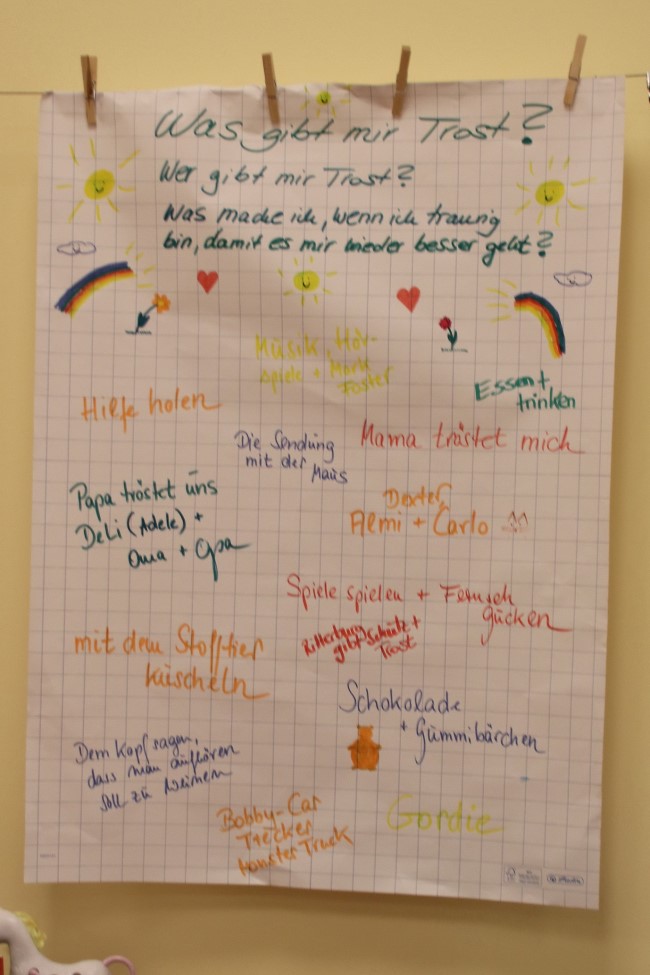 Was gibt mir Trost?
Wer gibt mir Trost?
Was mache ich, wenn ich traurig
bin, damit es mir wieder besser geht?
Musik, Hör-
spiele + Mark
Foster
Essen +
trinken
Hilfe holen
Die Sendung
mit der
Maus
Mama tröstet mich
Papa tröstet uns
DeLi (Adele) +
Oma + Opa
Dexter,
Almi + Carlo
Spiele spielen + Fernseh
gucken
Ritterburg
gibt Schutz +
Trost
mit dem Stofftier
kuscheln
Schokolade
+ Gummibärchen
Dem Kopf sagen,
dass man aufhören
soll zu weinen
Bobby-Car
Trecker
Monster Truck
Gordie